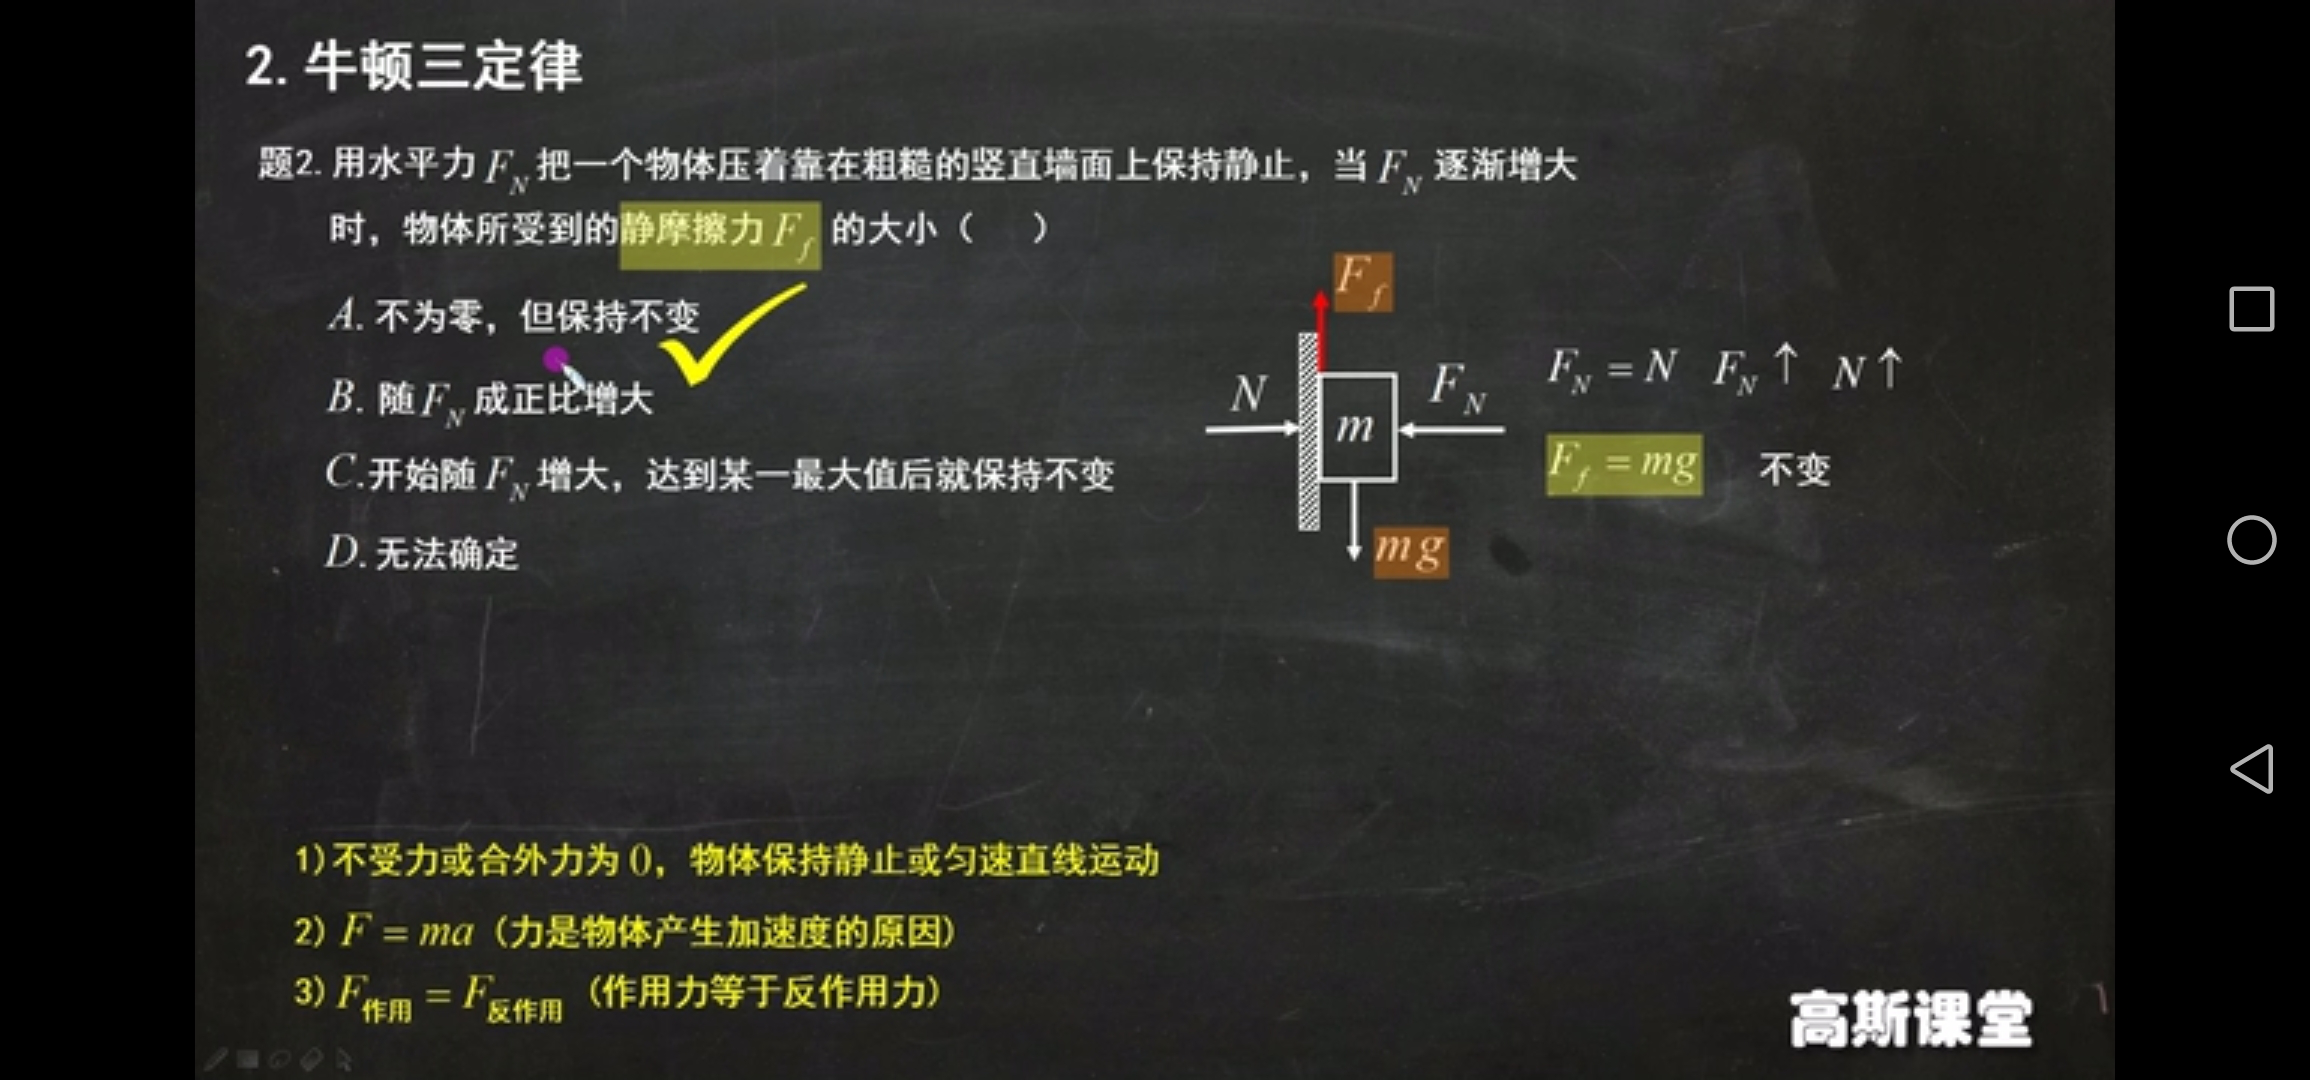 2. 牛顿三定律
题2. 用水平力 F_N 把一个物体压着靠在粗糙的竖直墙面上保持静止，当 F_N 逐渐增大
时，物体所受到的静摩擦力 F_f 的大小（ ）
A. 不为零，但保持不变
B. 随 F_N 成正比增大
C. 开始随 F_N 增大，达到某一最大值后就保持不变
D. 无法确定
F_f
N
m
F_N
mg
F_N = N F_N ↑ N ↑
F_f = mg 不变
1) 不受力或合外力为 0，物体保持静止或匀速直线运动
2) F = ma (力是物体产生加速度的原因)
3) F作用 = F反作用 (作用力等于反作用力)
高斯课堂